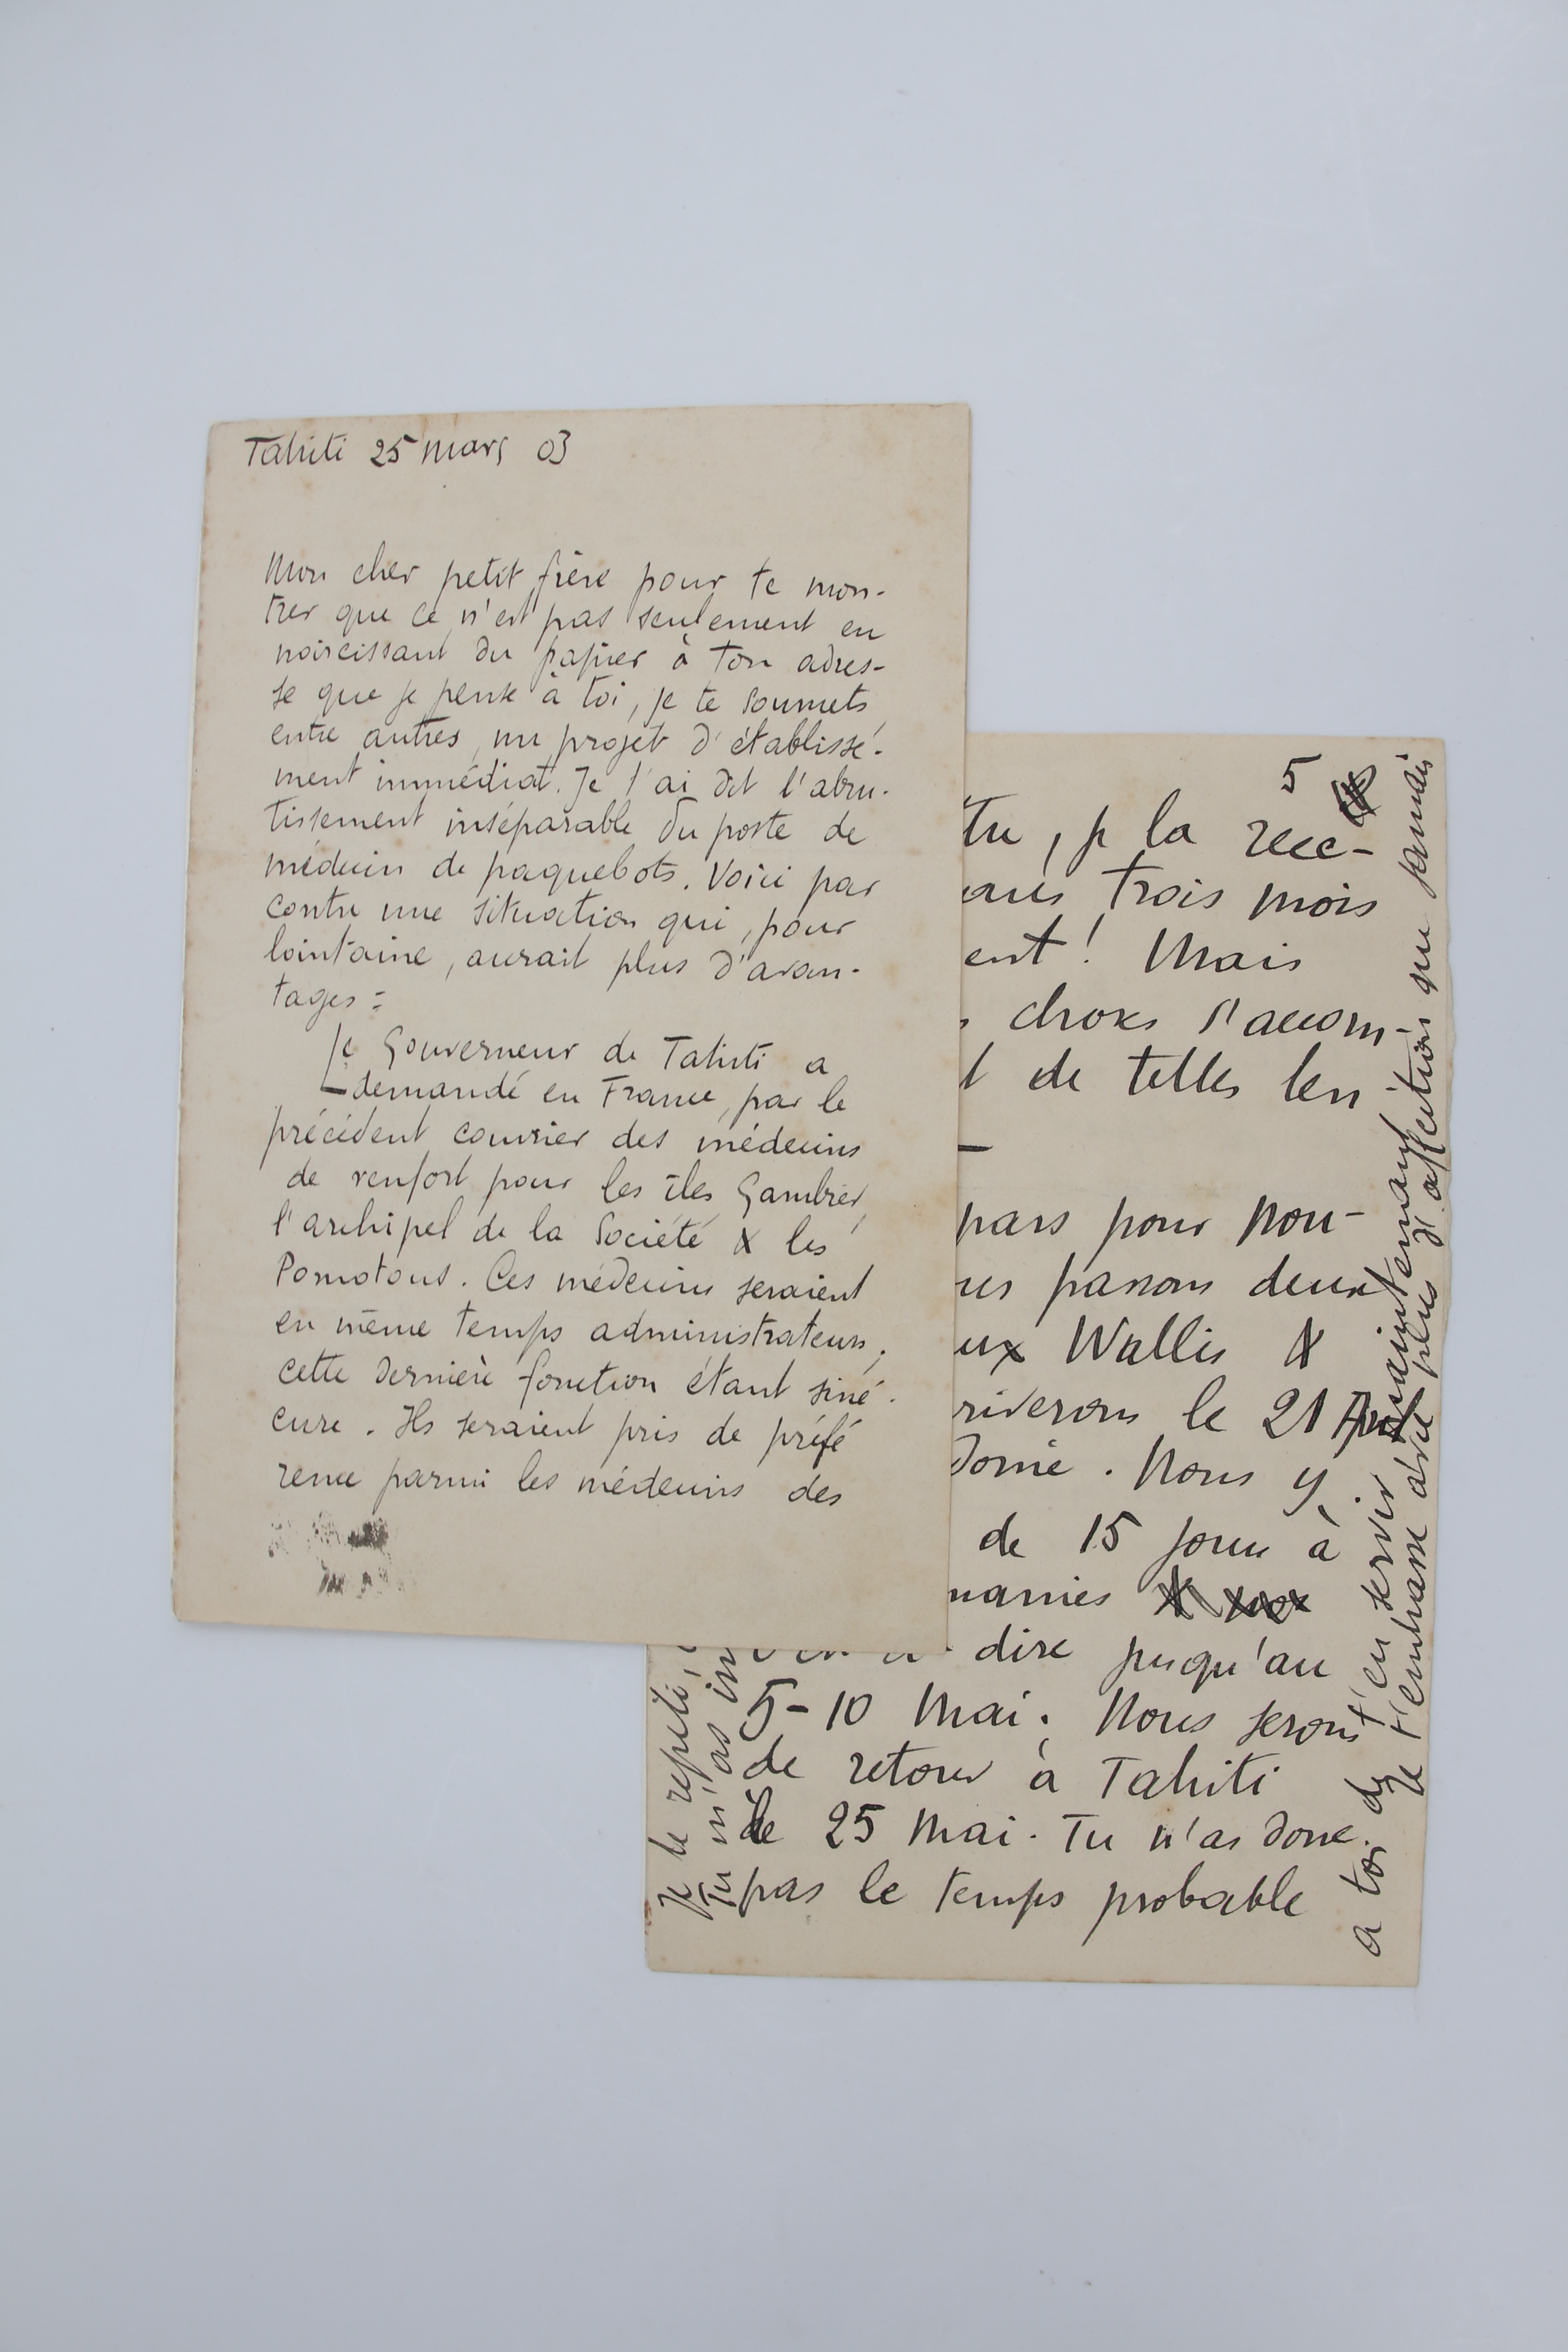 Tahiti 25 mars 03
Mon cher petit frère pour te mon-
trer que ce n'est pas seulement en
noircissant du papier à ton adres-
se que je pense à toi, je te soumets,
entre autres, un projet d'établisse-
ment immédiat. Je t'ai dit l'abru-
tissement inséparable du poste de
médecin de paquebots. Voici par
contre une situation qui, pour
lointaine, aurait plus d'avan-
tages :
Le Gouverneur de Tahiti a
demandé en France, par le
précédent courrier des médecins
de renfort pour les îles Gambier,
l'archipel de la Société & les
Pomotous. Ces médecins seraient
en même temps administrateurs,
cette dernière fonction étant siné-
cure. Ils seraient pris de préfé
rence parmi les médecins des
5
tu, je la rece-
trois mois
ent ! Mais
choses s'accom-
de telles len
pars pour Nou-
us passons deux
ux Wallis &
riverons le 21 Avril
Nous y
de 15 jours à
dire jusqu'au
5-10 Mai. Nous serons
de retour à Tahiti
le 25 Mai. Tu n'as donc
pas le temps probable
à toi de t'en servir maintenant
Je t'embrasse avec plus d'affection que jamais
Je te répète,
Tu m'as